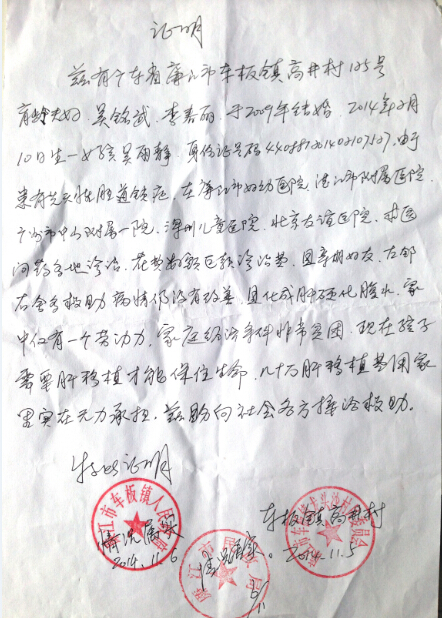 证明
兹有广东省廉江市车板镇高井村125号
育龄夫妇 吴铭武、李春丽 于2009年结婚. 2014年2月
10日生一女孩吴雨静. 身份证号码 由于
患有先天性胆道闭锁. 在廉江市妇幼医院. 湛江市附属医院.
广州市中山附属一院. 深圳儿童医院. 北京友谊医院. 求医
问药各地诊治. 花费数额巨额诊治费. 因亲朋好友. 左邻
右舍多救助 病情仍没有改善. 且化成肝硬化腹水. 家
中仅有一个劳动力. 家庭经济条件非常贫困. 现在孩子
需要肝移植才能保住生命. 几十万肝移植费因家
里实在无力承担. 兹盼向社会各方捐给救助。
特此证明
车板镇高井村
情况属实
2014.11.6
情况属实.
2014.11.5
廉江市车板镇人民政府